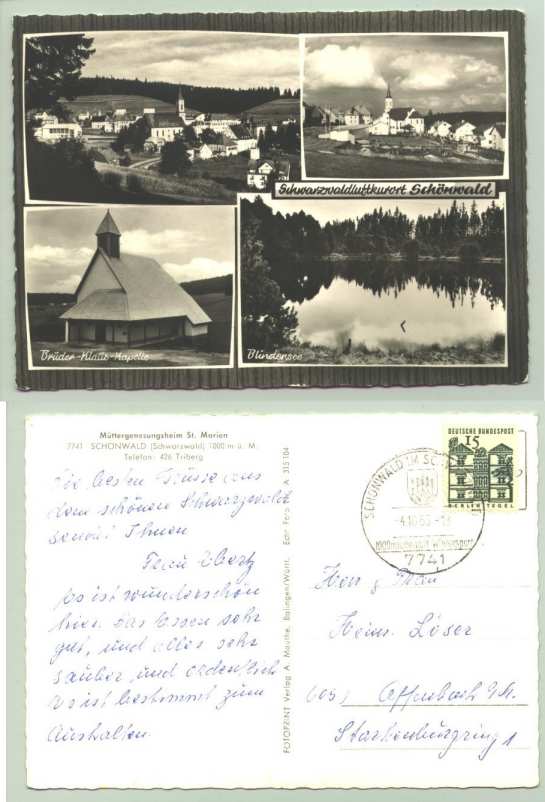 Schwarzwaldluftkurort Schönwald
Bruder-Klaus-Kapelle
Blindensee
Müttergenesungsheim St. Marien
7741 SCHÖNWALD (Schwarzwald) 1000 m ü. M.
Telefon: 426 Triberg
Die besten Grüsse aus
dem schönen Schwarzwald
sendet Ihnen
Frau Ebert
Es ist wunderschön
hier. Das Essen sehr
gut, und alles sehr
sauber und ordentlich
Es ist bestimmt zum
Aushalten.
FOTOPRINT Verlag A. Mauthe, Balingen/Württ. Echt Foto A 315 104
SCHÖNWALD IM
7741
DEUTSCHE BUNDESPOST
15
BERLIN TEGEL
Herr u Frau
Heinr. Löser
605, Offenbach a/M.
Starkenburgring 1